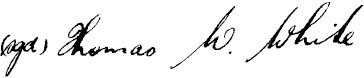 (sgd) Thomas W. White